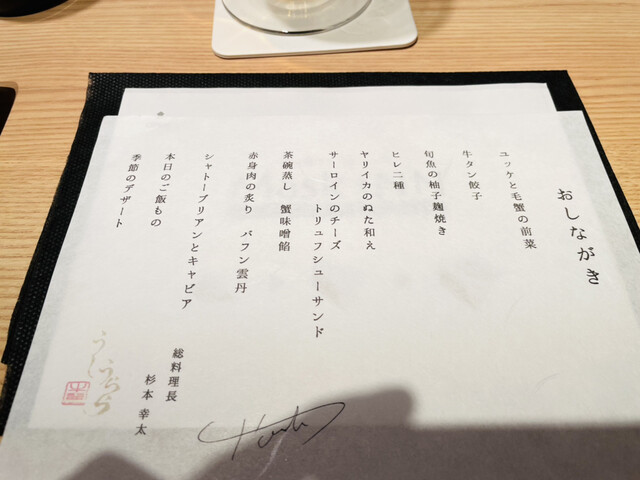 おしながき
ユッケと毛蟹の前菜
牛タン餃子
旬魚の柚子麹焼き
ヒレ二種
ヤリイカのぬた和え
サーロインのチーズ
トリュフシューサンド
茶碗蒸し 蟹味噌餡
赤身肉の炙り バフン雲丹
シャトーブリアンとキャビア
本日のご飯もの
季節のデザート
総料理長
杉本 幸太